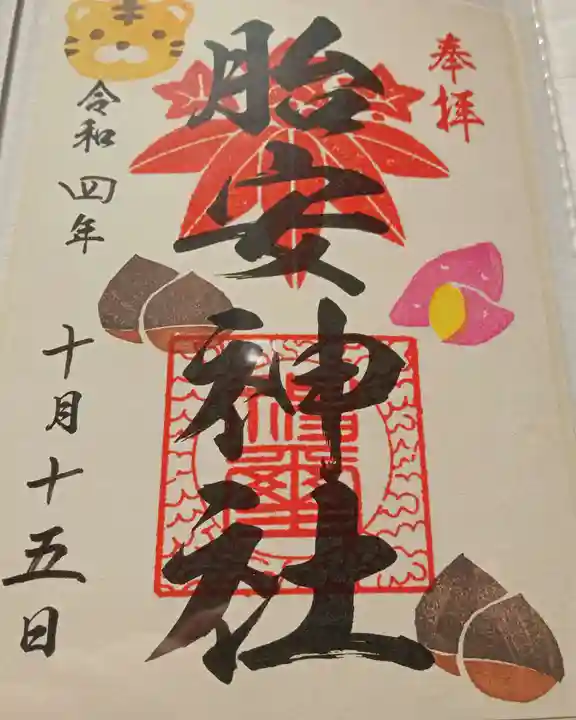 奉拝
胎安神社
令和四年
十月十五日